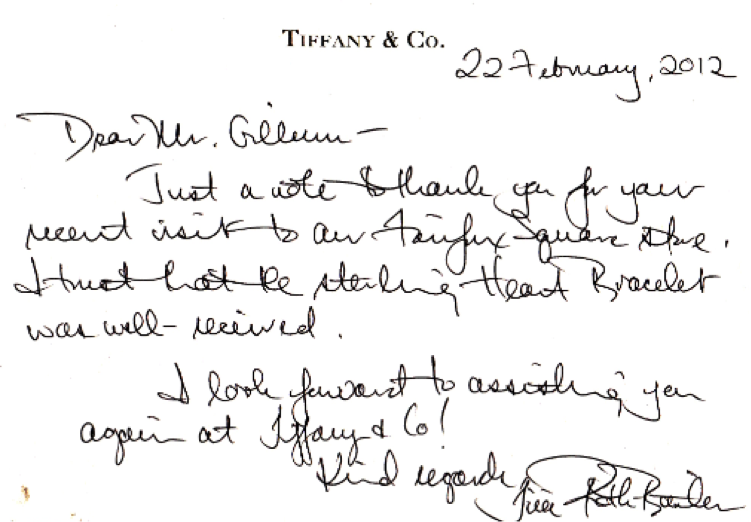 TIFFANY & CO.
22 February, 2012
Dear Mr. Gilleum —
Just a note to thank you for your
recent visit to our Fairfax Square store.
I trust that the sterling Heart Bracelet
was well-received.
I look forward to assisting you
again at Tiffany & Co!
Kind regards,